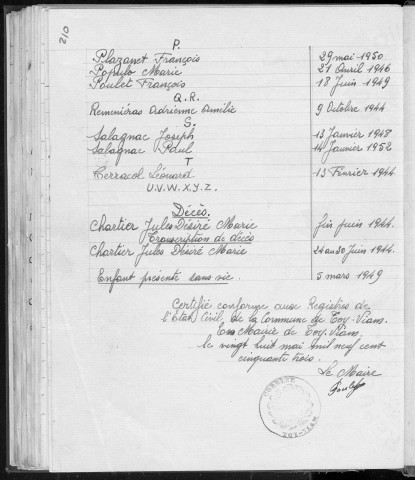 210
P.
Plazanet François 29 mai 1950
Populo Marie 21 Avril 1946
Poulet François 18 Juin 1949
Q.R.
Remeniéras Adrienne Amélie 9 Octobre 1944
S.
Salagnac Joseph 13 Janvier 1948
Salagnac Paul 14 Janvier 1952
T
Terracol Léonard 13 Février 1944
U.V.W.X.Y.Z.
Décès.
Chartier Jules Désiré Marie fin juin 1944
Transcription de décès
Chartier Jules Désiré Marie 24 au 30 Juin 1944
Enfant présenté sans vie. 5 mars 1949
Certifié conforme aux Registres de
l'Etat Civil de la Commune de Toy-Viam.
En Mairie de Toy-Viam.
le vingt huit mai mil neuf cent
cinquante trois.
Le Maire
CORREZE
TOY-VIAM